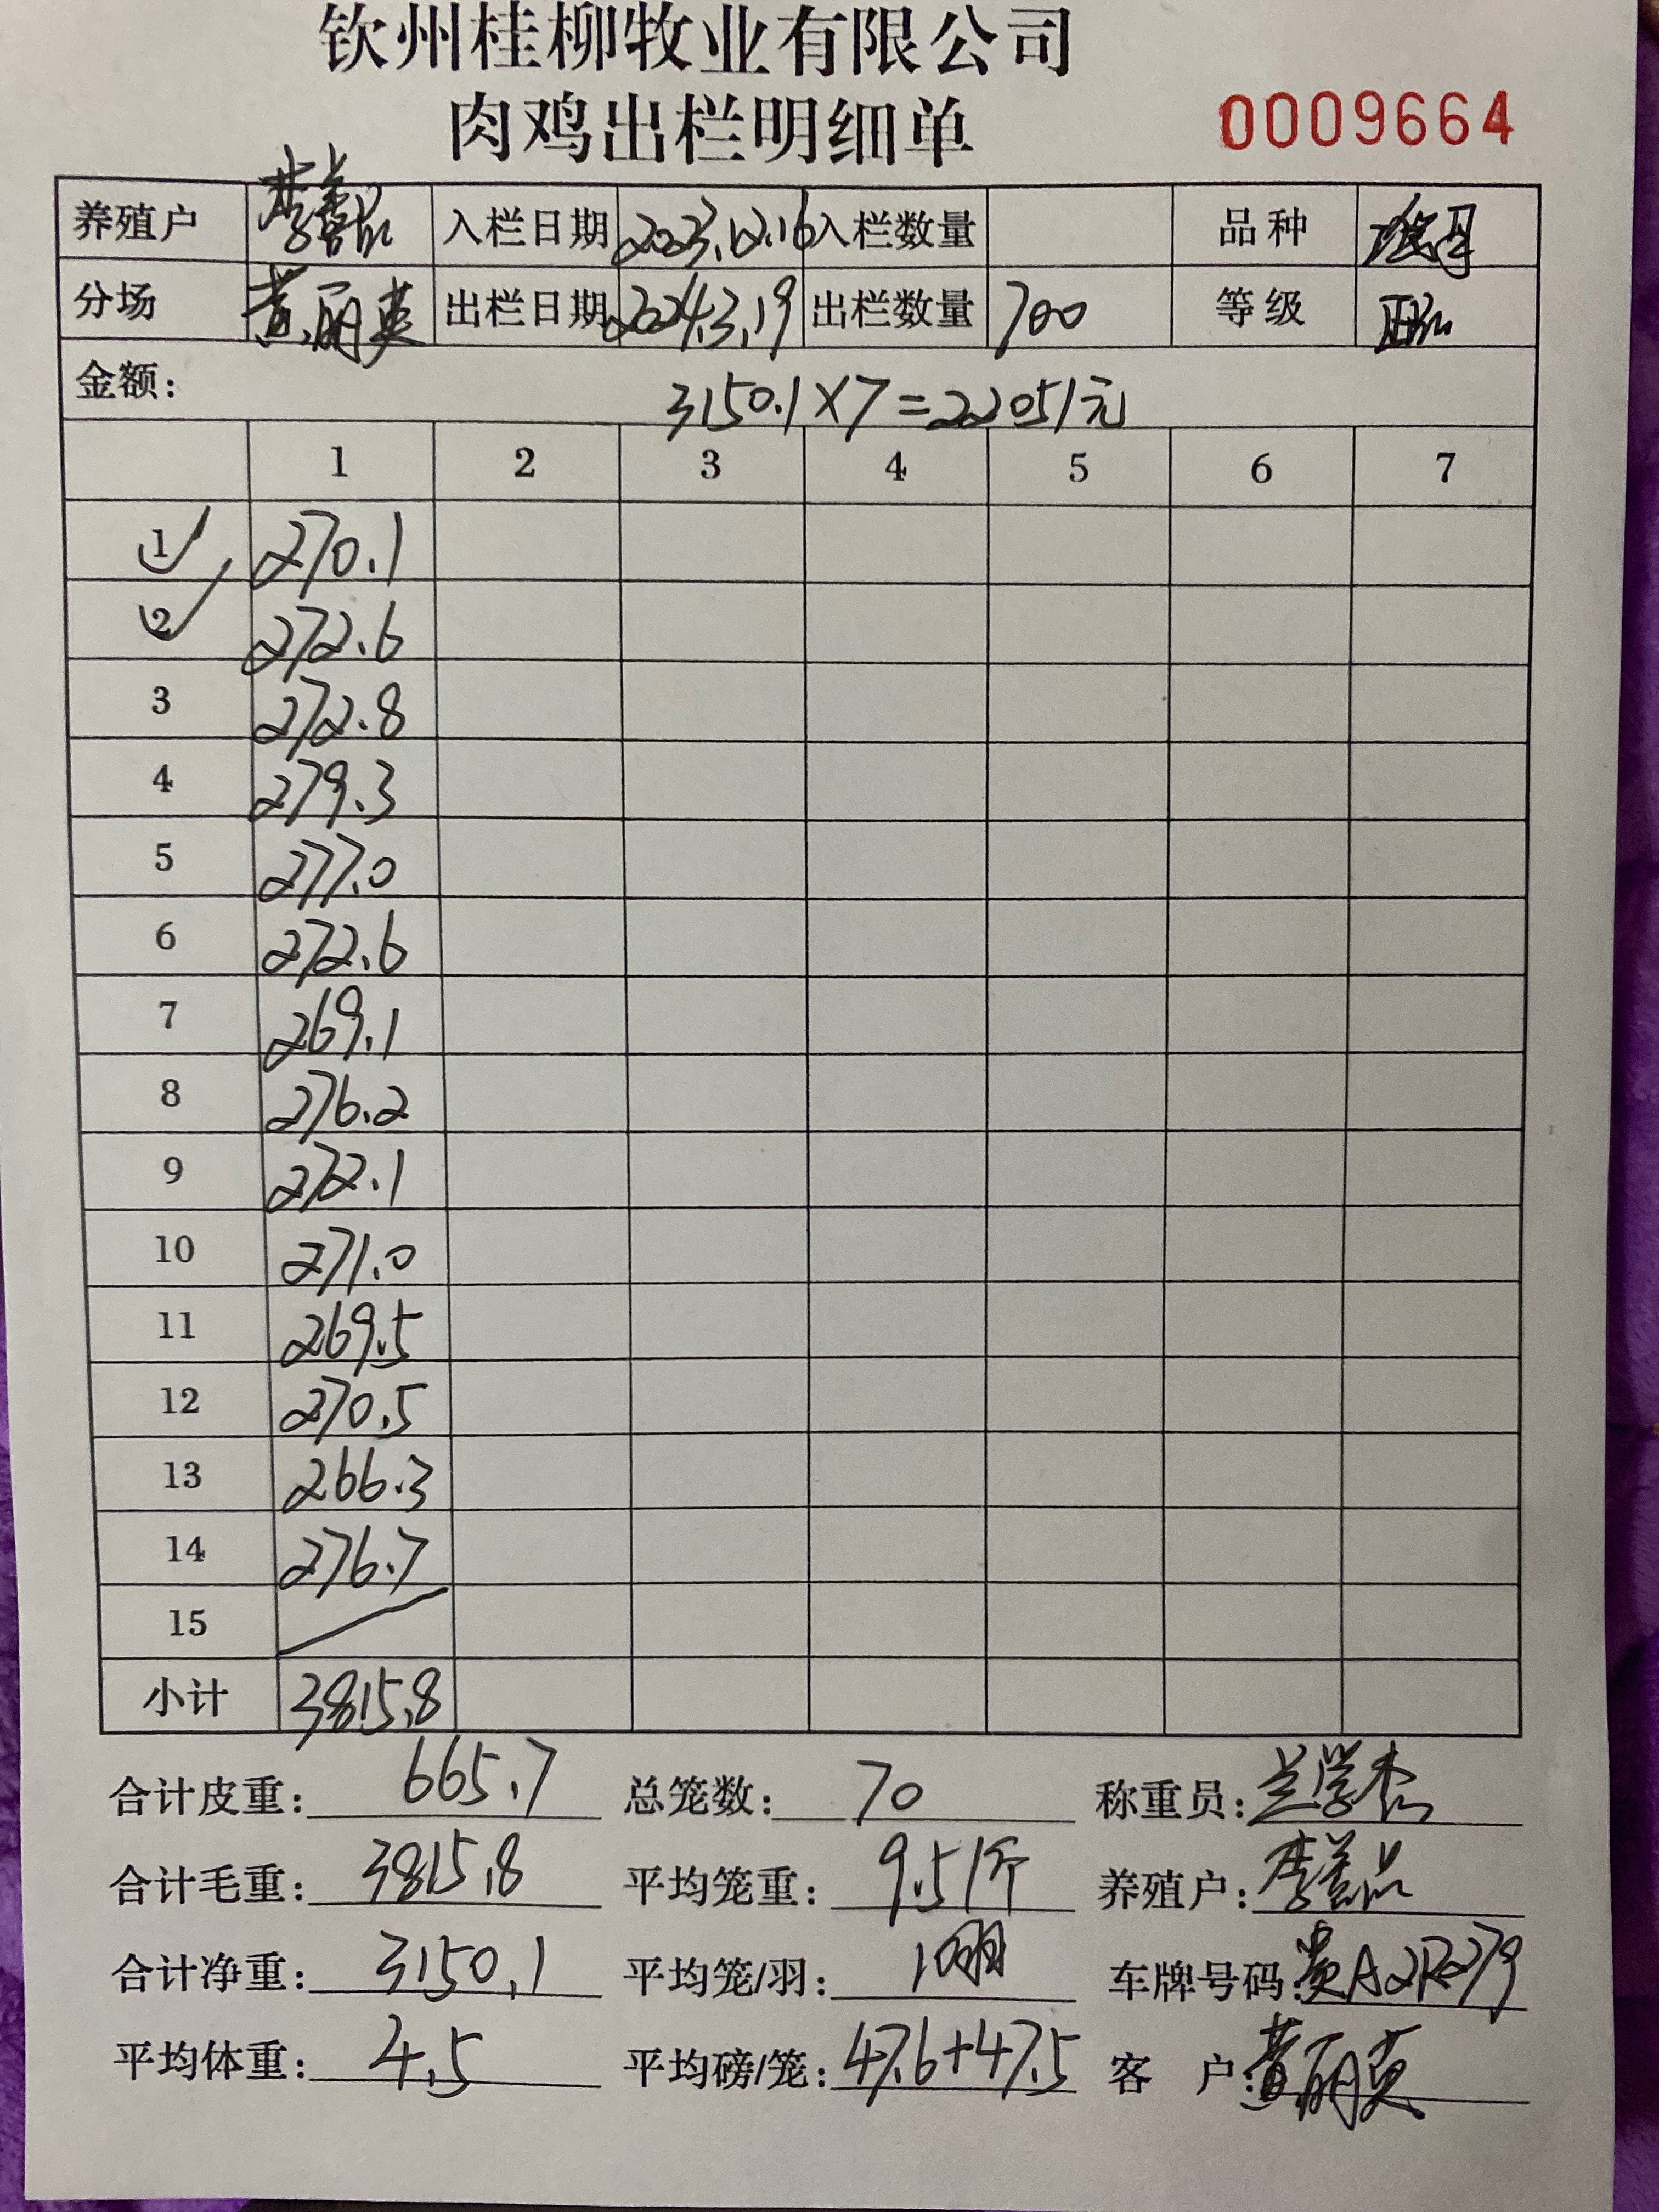 钦州桂柳牧业有限公司
肉鸡出栏明细单 0009664
养殖户 入栏日期 2023.12.16 入栏数量 品种
分场 黄丽英 出栏日期 2024.3.19 出栏数量 700 等级
金额: 3150.1×7=22051元
1 2 3 4 5 6 7
1 270.1
2 272.6
3 272.8
4 279.3
5 277.0
6 272.6
7 269.1
8 276.2
9 272.1
10 271.0
11 269.5
12 270.5
13 266.3
14 276.7
15
小计 3815.8
合计皮重: 665.7 总笼数: 70 称重员: 兰学杰
合计毛重: 3815.8 平均笼重: 9.51斤 养殖户: 李善品
合计净重: 3150.1 平均笼/羽: 10羽 车牌号码: 贵A2R279
平均体重: 4.5 平均磅/笼: 47.6+47.5 客户: 黄丽英